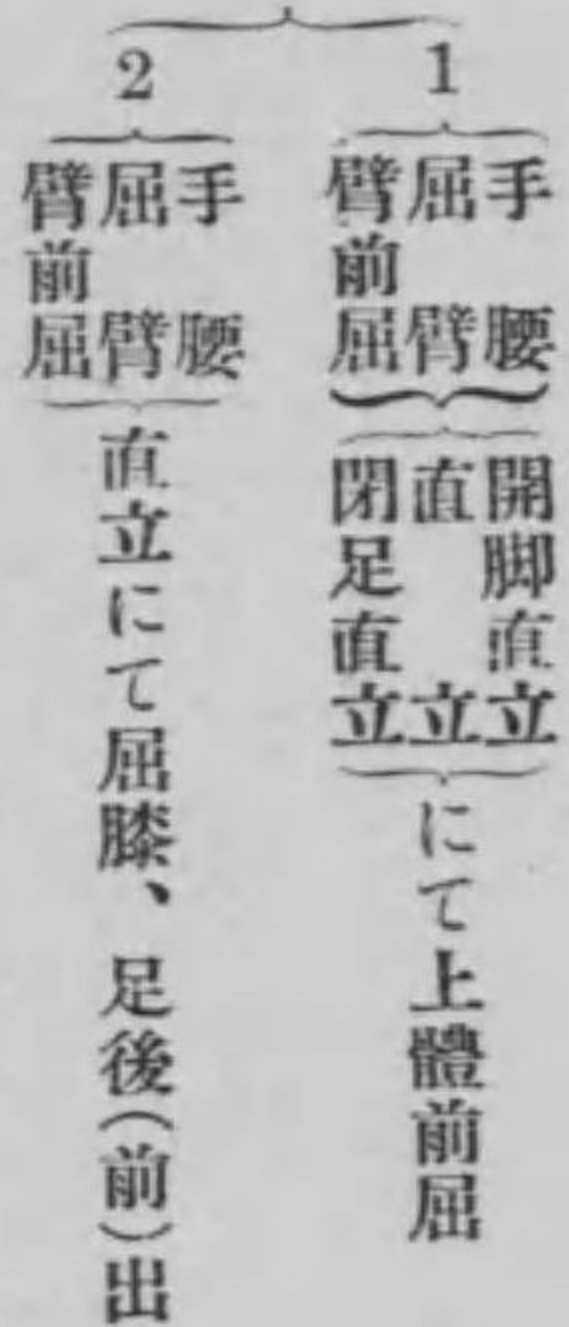 1
手腰
屈臂
臂前屈
開脚直立
直立
閉足直立
にて上體前屈
2
手腰
屈臂
臂前屈
直立にて屈膝、足後(前)出